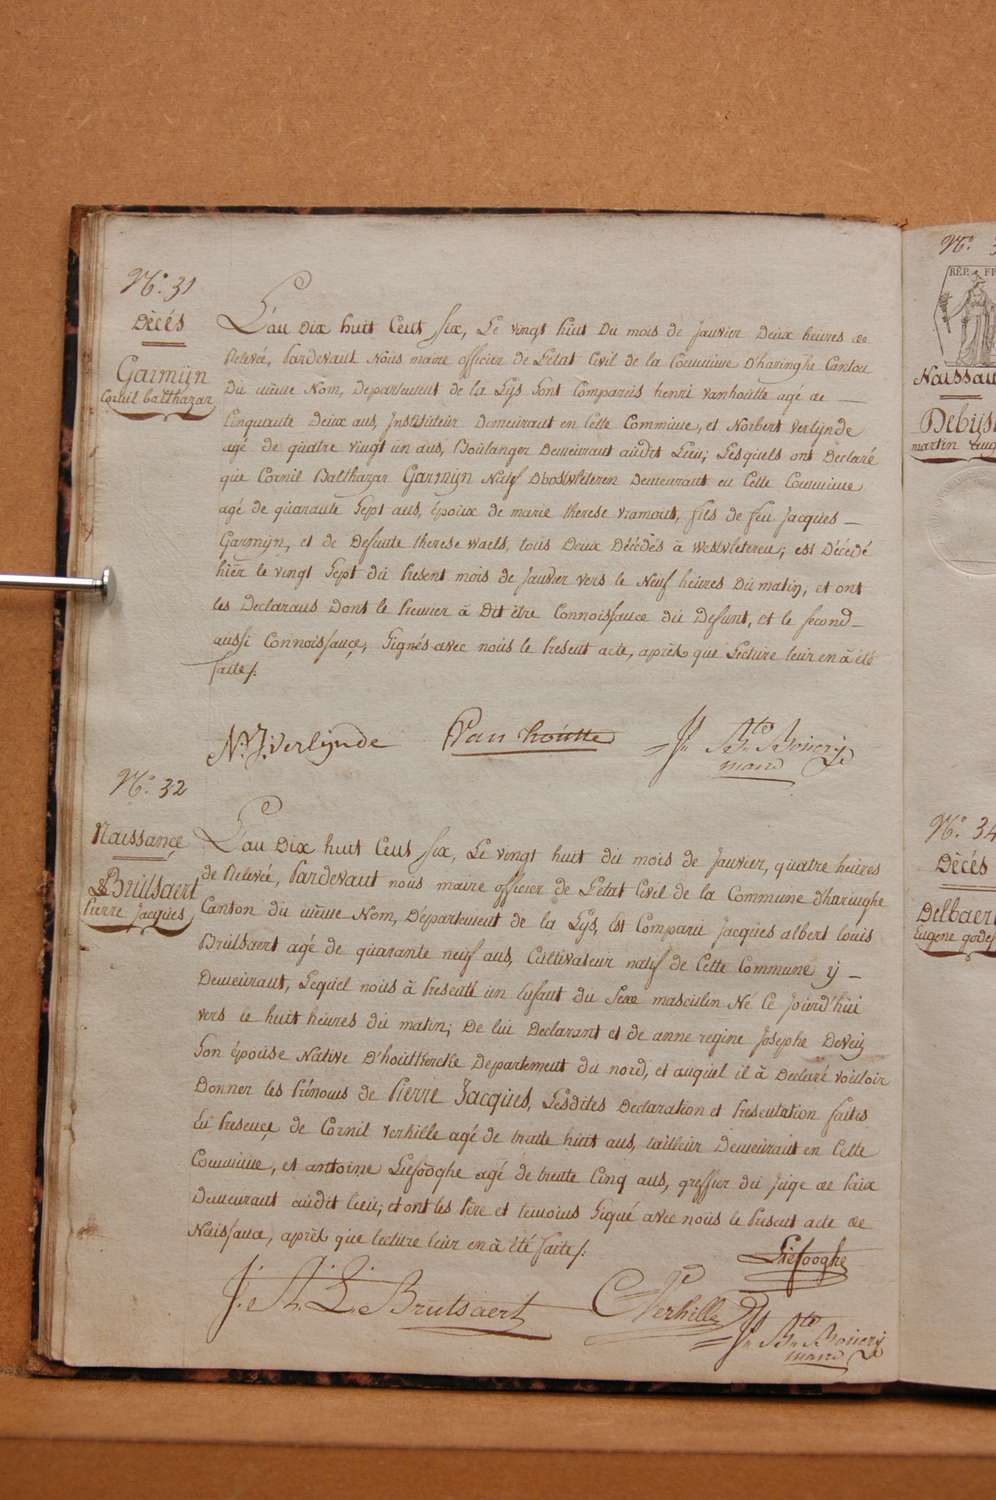 N.º 31
Décés
Garmijn
Cornil balthazar
L'an Dix huit Cent six, Le vingt huit Du mois de Janvier Deux heures de
Relevée, Pardevant Nous maire officier de L'état Civil de la Commune D'haringhe Canton
Du même Nom, Departement de la Lijs Sont Comparus henri vanhoutte agé de —
Cinquante Deux ans, Instituteur Demeurant en Cette Commune, et Norbert verlijnde
agé de quatre vingt un ans, Boulanger Demeurant audit Lieu; Lesquels ont Declaré
que Cornil Balthazar Garmijn Natif D'oostvleteren Demeurant en Cette Commune
agé de quarante Sept ans, époux de marie therese vramout, fils de feu Jacques —
Garmijn, et de Defunte therese waels, tous Deux Décédés à westvleteren; est Décedé
hièr le vingt Sept du Present mois de Janvier vers le Neuf heures Du matin, et ont
les Declarans Dont le Premier à Dit être Connoissance du Défunt, et le second —
aussi Connoissance, Signés avec nous le Present acte, après que Lecture leur en à été
faite/.
N. J. Verlijnde
Van houtte
N.º 32
Naissance
Brutsaert
Pierre Jacques
L'an Dix huit Cent six, Le vingt huit du mois de Janvier, quatre heures
de Relevée, Pardevant nous maire officier de L'état Civil de la Commune d'haringhe
Canton du même Nom, Département de la Lijs, Est Comparu Jacques albert louis
Brutsaert agé de quarante neuf ans, Cultivateur natif de Cette Commune ij —
Demeurant, Lequel nous à Presenté un Enfant du Sexe masculin Né Ce Jourd'hui
vers le huit heures du matin; De lui Declarant et de anne regine Josephe Deveij
Son épouse Native D'houtkercke Departement du nord, et auquel il à Declaré vouloir
Donner les Prénoms de Pierre Jacques, Lesdites Declaration et Presentation faites
En Presence de Cornil verhille agé de trente huit ans, tailleur Demeurant en Cette
Commune, et antoine Liefooghe agé de trente Cinq ans, greffier du Juge de Paix
Demeurant audit lieu; et ont les Père et temoins Signé avec nous le Present acte de
Naissance, après que lecture leur en à été faite/.
Liefooghe
J. A. L. Brutsaert
C Verhille
N.º
RÉP. FR
Naissan
Debus
martin
N.º 34
Décés
Delbaer
Eugene godef